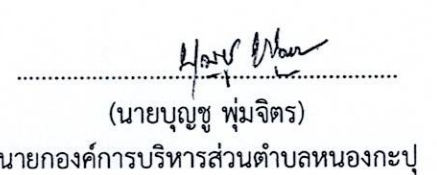 (นายบุญชู พุ่มจิตร)
นายกองค์การบริหารส่วนตำบลหนองกะปุ